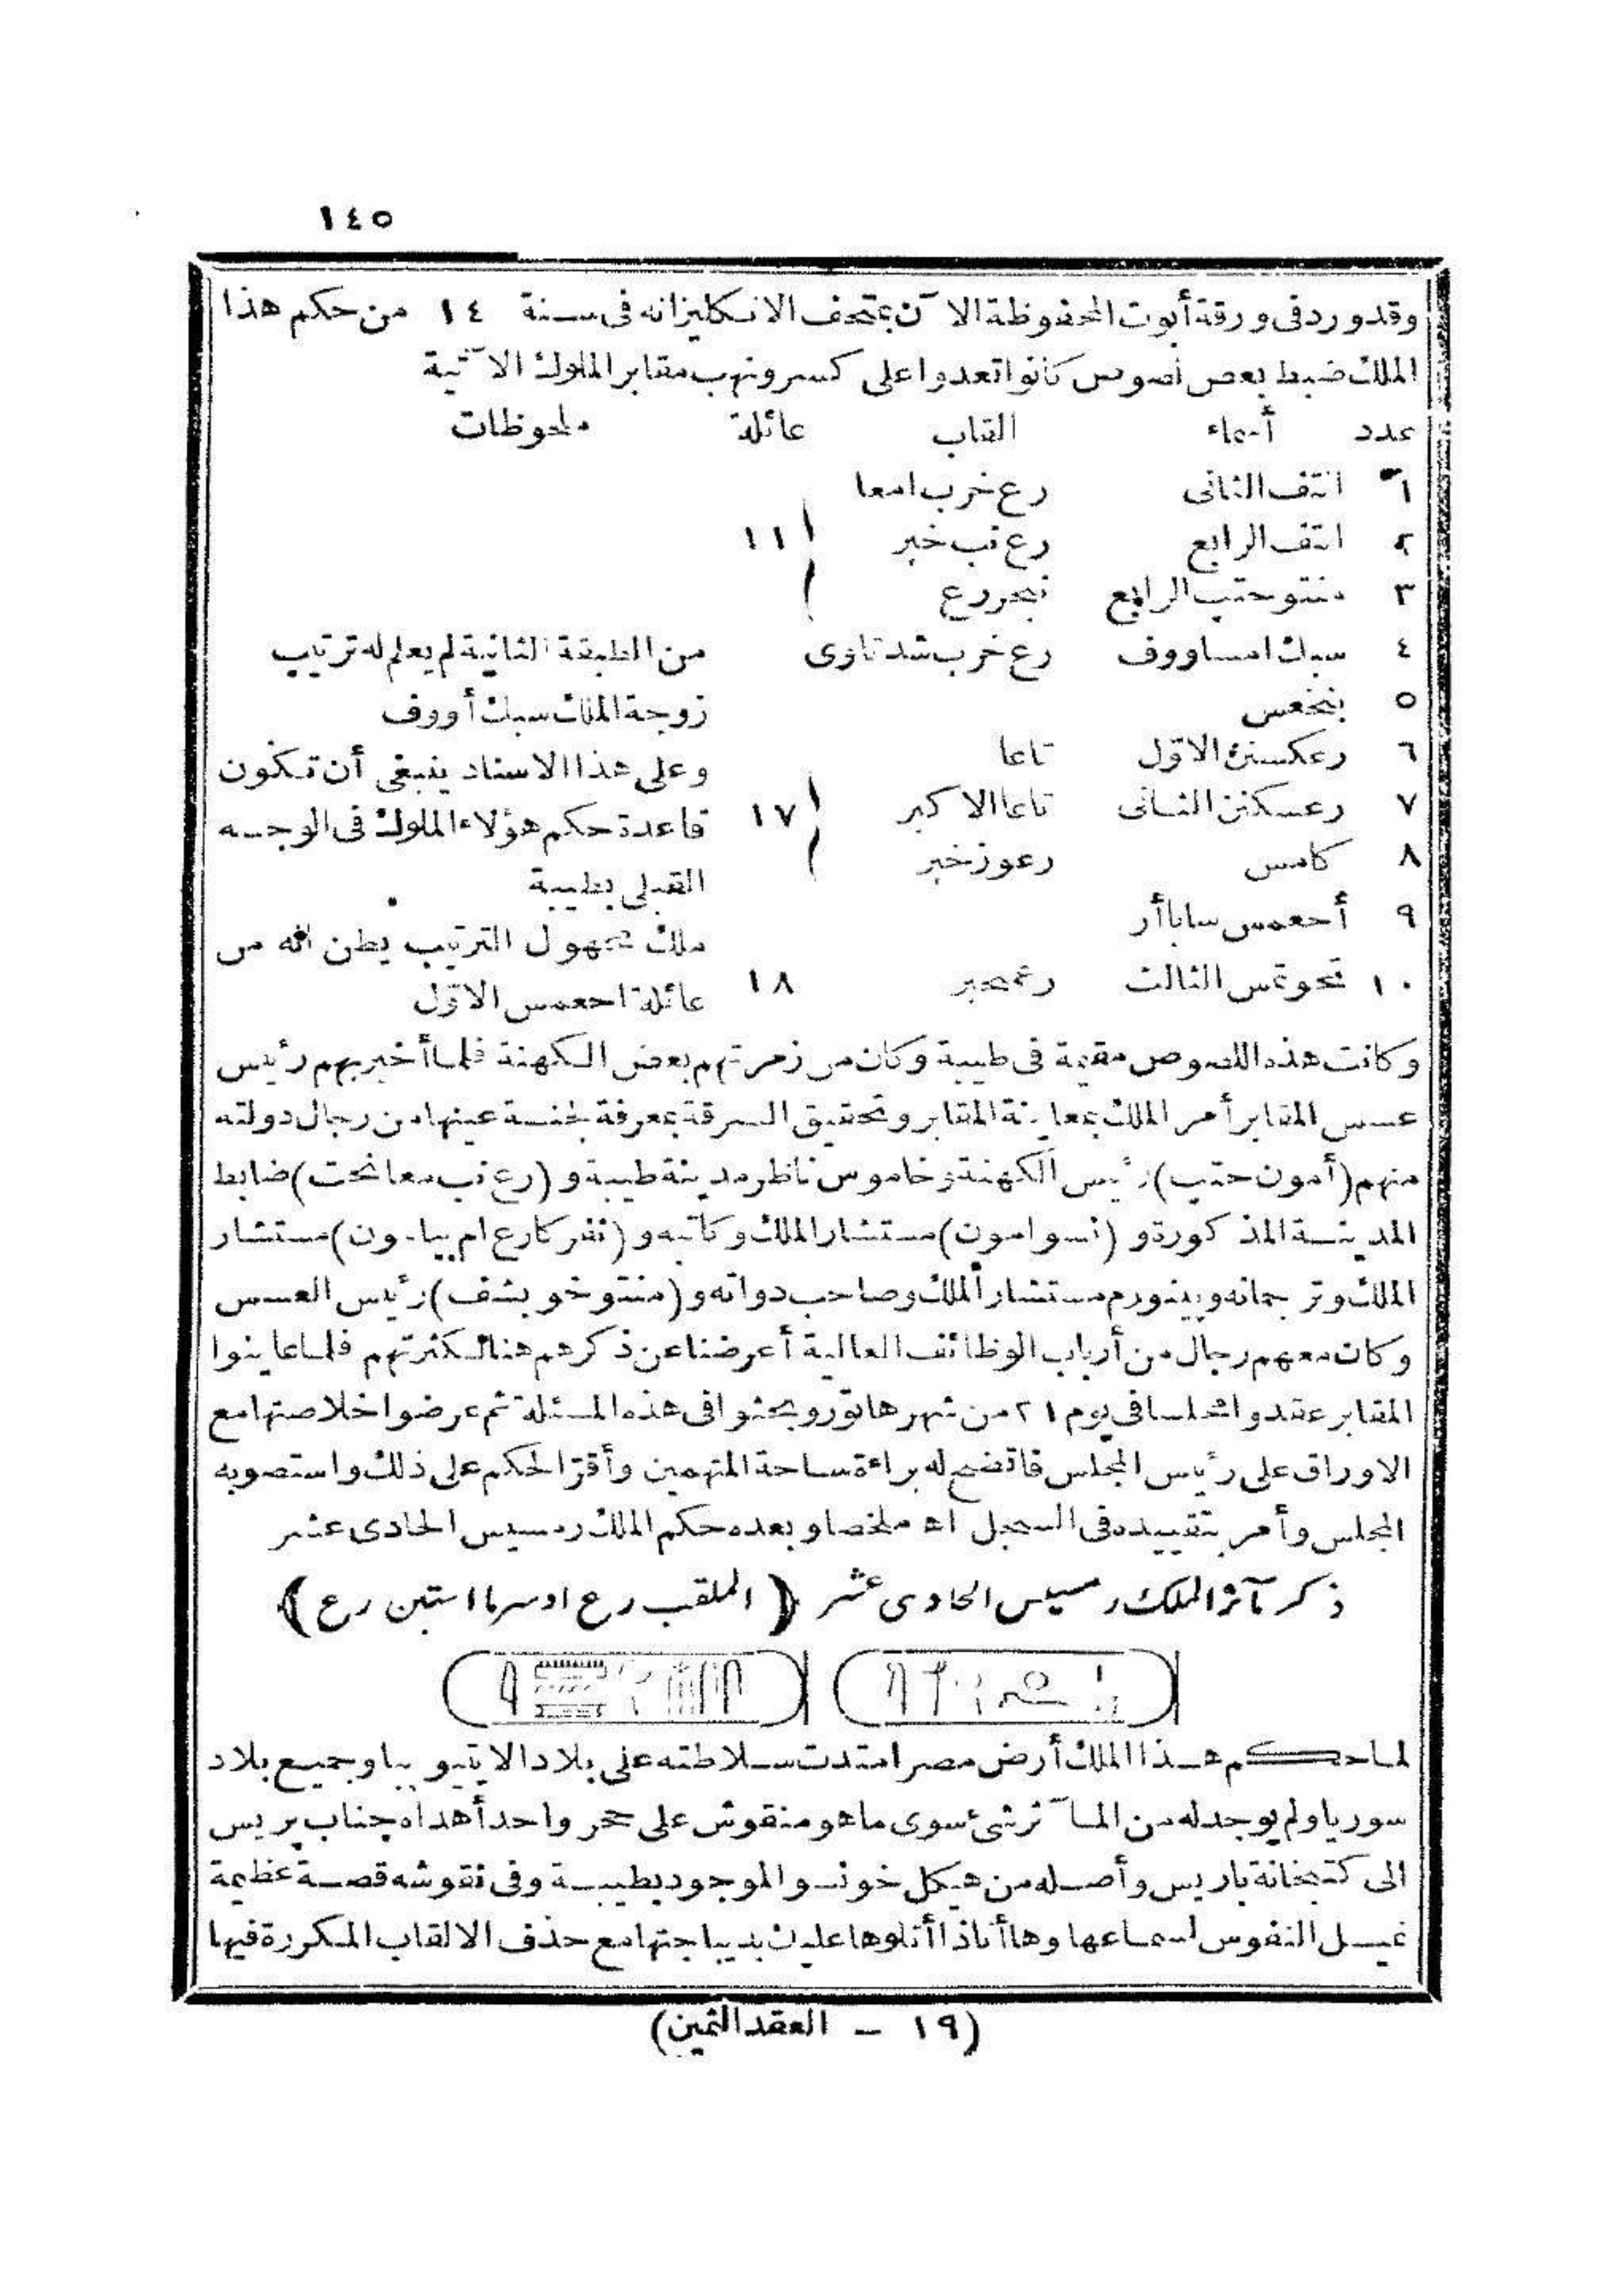 ١٤٥
وقد ورد فى ورقة أبوت المحفوظة الآن بمتحف الانكليز انه فى سنة ١٤ من حكم هذا
الملك ضبط بعض لصوص كانوا تعدوا على كسر ونهب مقابر الملوك الآتية
عدد أسماء القاب عائلة ملحوظات
١ انتف الثانى رع خرب امعا
٢ انتف الرابع رع نب خبر ١١
٣ منتوحتب الرابع نبخررع
٤ سبك امساووف رع خرب شد تاوى من الطبقة الثانية لم يعلم له ترتيب
٥ بنخعس زوجة الملك سبك أووف
٦ رعكسنن الاوّل تاعا وعلى هذا الاسناد ينبغى أن تكون
٧ رعسكنن الثانى تاعا الاكبر ١٧ قاعدة حكم هؤلاء الملوك فى الوجه
٨ كامس رعوزخبر القبلى بطيبة
٩ أحعمس سابا أر ملك مجهول الترتيب يظن انه من
١٠ تحوتمس الثالث ١٨ عائلة احعمس الاوّل
وكانت هذه اللصوص مقيمة فى طيبة وكان من زمرتهم بعض الكهنة فلما أخبر بهم رئيس
عسس المقابر أمر الملك بمعاينة المقابر وتحقيق السرقة بمعرفة لجنسة عينها من رجال دولته
منهم (أمون حتب) رئيس الكهنة وخاموس ناظر مدينة طيبة و (رع نب معا نخت) ضابط
المدينة المذكورة و (نسو امون) مستشار الملك وكاتبه و (نفر كارع ام بيامون) مستشار
الملك وترجمانه وبينورم مستشار الملك وصاحب دواته و (منتو خو بشف) رئيس العسس
وكان معهم رجال من أرباب الوظائف العالية أعرضنا عن ذكرهم هنا لكثرتهم فلما عاينوا
المقابر عقدوا مجلسا فى يوم ٢١ من شهر هاتور وبحثوا فى هذه المسئلة ثم عرضوا خلاصتها مع
الاوراق على رئيس المجلس فاتضح له براءة ساحة المتهمين وأقرّ الحكم على ذلك واستصوبه
المجلس وأمر بتقييده فى السجل اه ملخصا وبعده حكم الملك رمسيس الحادى عشر
ذكر مآثر الملك رمسيس الحادى عشر (الملقب رع اوسرما استبن رع)
لما حكم هذا الملك أرض مصر امتدت سلاطته على بلاد الايتيوبيا وجميع بلاد
سوريا ولم يوجد له من المآثر شئ سوى ما هو منقوش على حجر واحد أهداه جناب بريس
الى كتبخانة باريس وأصله من هيكل خونسو الموجود بطيبة وفى نقوشه قصة عظيمة
تميل النفوس لسماعها وها أناذا أتلوها عليك بديباجتها مع حذف الالقاب المكررة فيها
(١٩ – العقد الثمين)